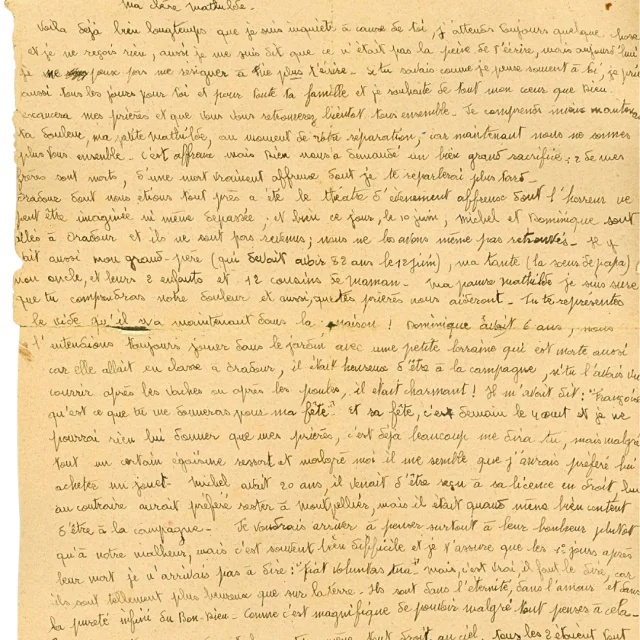 Ma chère Mathilde.
Voilà déjà bien longtemps que je suis inquiète à cause de toi, j'attends toujours quelque chose
et je ne reçois rien, aussi je me suis dit que ce n'était pas la peine de t'écrire, mais aujourd'hui
je ne peux pas me résigner à ne plus t'écrire. Si tu savais comme je pense souvent à toi, je prie
aussi tous les jours pour toi et pour toute ta famille et je souhaite de tout mon cœur que Dieu
exaucera mes prières et que vous vous retrouverez bientôt tous ensemble. Je comprends mieux maintenant
ta douleur, ma petite Mathilde, au moment de votre séparation, car maintenant nous ne sommes
plus tous ensemble. C'est affreux mais Dieu nous a demandé un bien grand sacrifice : 2 de mes
frères sont morts, d'une mort vraiment affreuse dont je te reparlerai plus tard.
Oradour dont nous étions tout près a été le théâtre d'évènement affreux dont l'horreur ne
peut être imaginée ni même dépassée : et bien ce jour, le 10 juin, Michel et Dominique sont
allés à Oradour et ils ne sont pas revenus, nous ne les avons même pas retrouvés. Il y
avait aussi mon grand-père (qui devait avoir 82 ans le 12 juin), ma tante (la sœur de papa)
mon oncle, et leurs 2 enfants et 12 cousins de maman. Ma pauvre Mathilde je suis sûre
que tu comprendras notre douleur et aussi, que tes prières nous aideront. Tu te représentes
le vide qu'il y a maintenant dans la maison ! Dominique avait 6 ans, nous
l'entendions toujours jouer dans le jardin avec une petite lorraine qui est morte aussi
car elle allait en classe à Oradour, il était heureux d'être à la campagne, si tu l'avais vu
courrir après les vaches ou après les poules, il était charmant ! Il m'avait dit : "Françoise
qu'est ce que tu me donneras pour ma fête" et sa fête, c'est demain le 4 août et je ne
pourrai rien lui donner que mes prières, c'est déjà beaucoup me dira tu, mais malgré
tout un certain égoïsme ressort et malgré moi il me semble que j'aurais préféré lui
acheter un jouet. Michel avait 20 ans, il venait d'être reçu à sa licence en droit, lui
au contraire aurait préféré rester à Montpellier, mais il était quand même bien content
d'être à la campagne. Je voudrais arriver à penser surtout à leur bonheur plutôt
qu'à notre malheur, mais c'est souvent bien difficile et je t'assure que les 1er jours après
leur mort je n'arrivais pas à dire : "Fiat voluntas tua" mais, c'est vrai il faut le dire, car
ils sont tellement plus heureux que sur la terre. Ils sont dans l'éternité, dans l'amour et dans
la pureté infini du Bon-Dieu. Comme c'est magnifique de pouvoir malgré tout penser à cela.
même tout droit au ciel, tous les 2 étaient tout